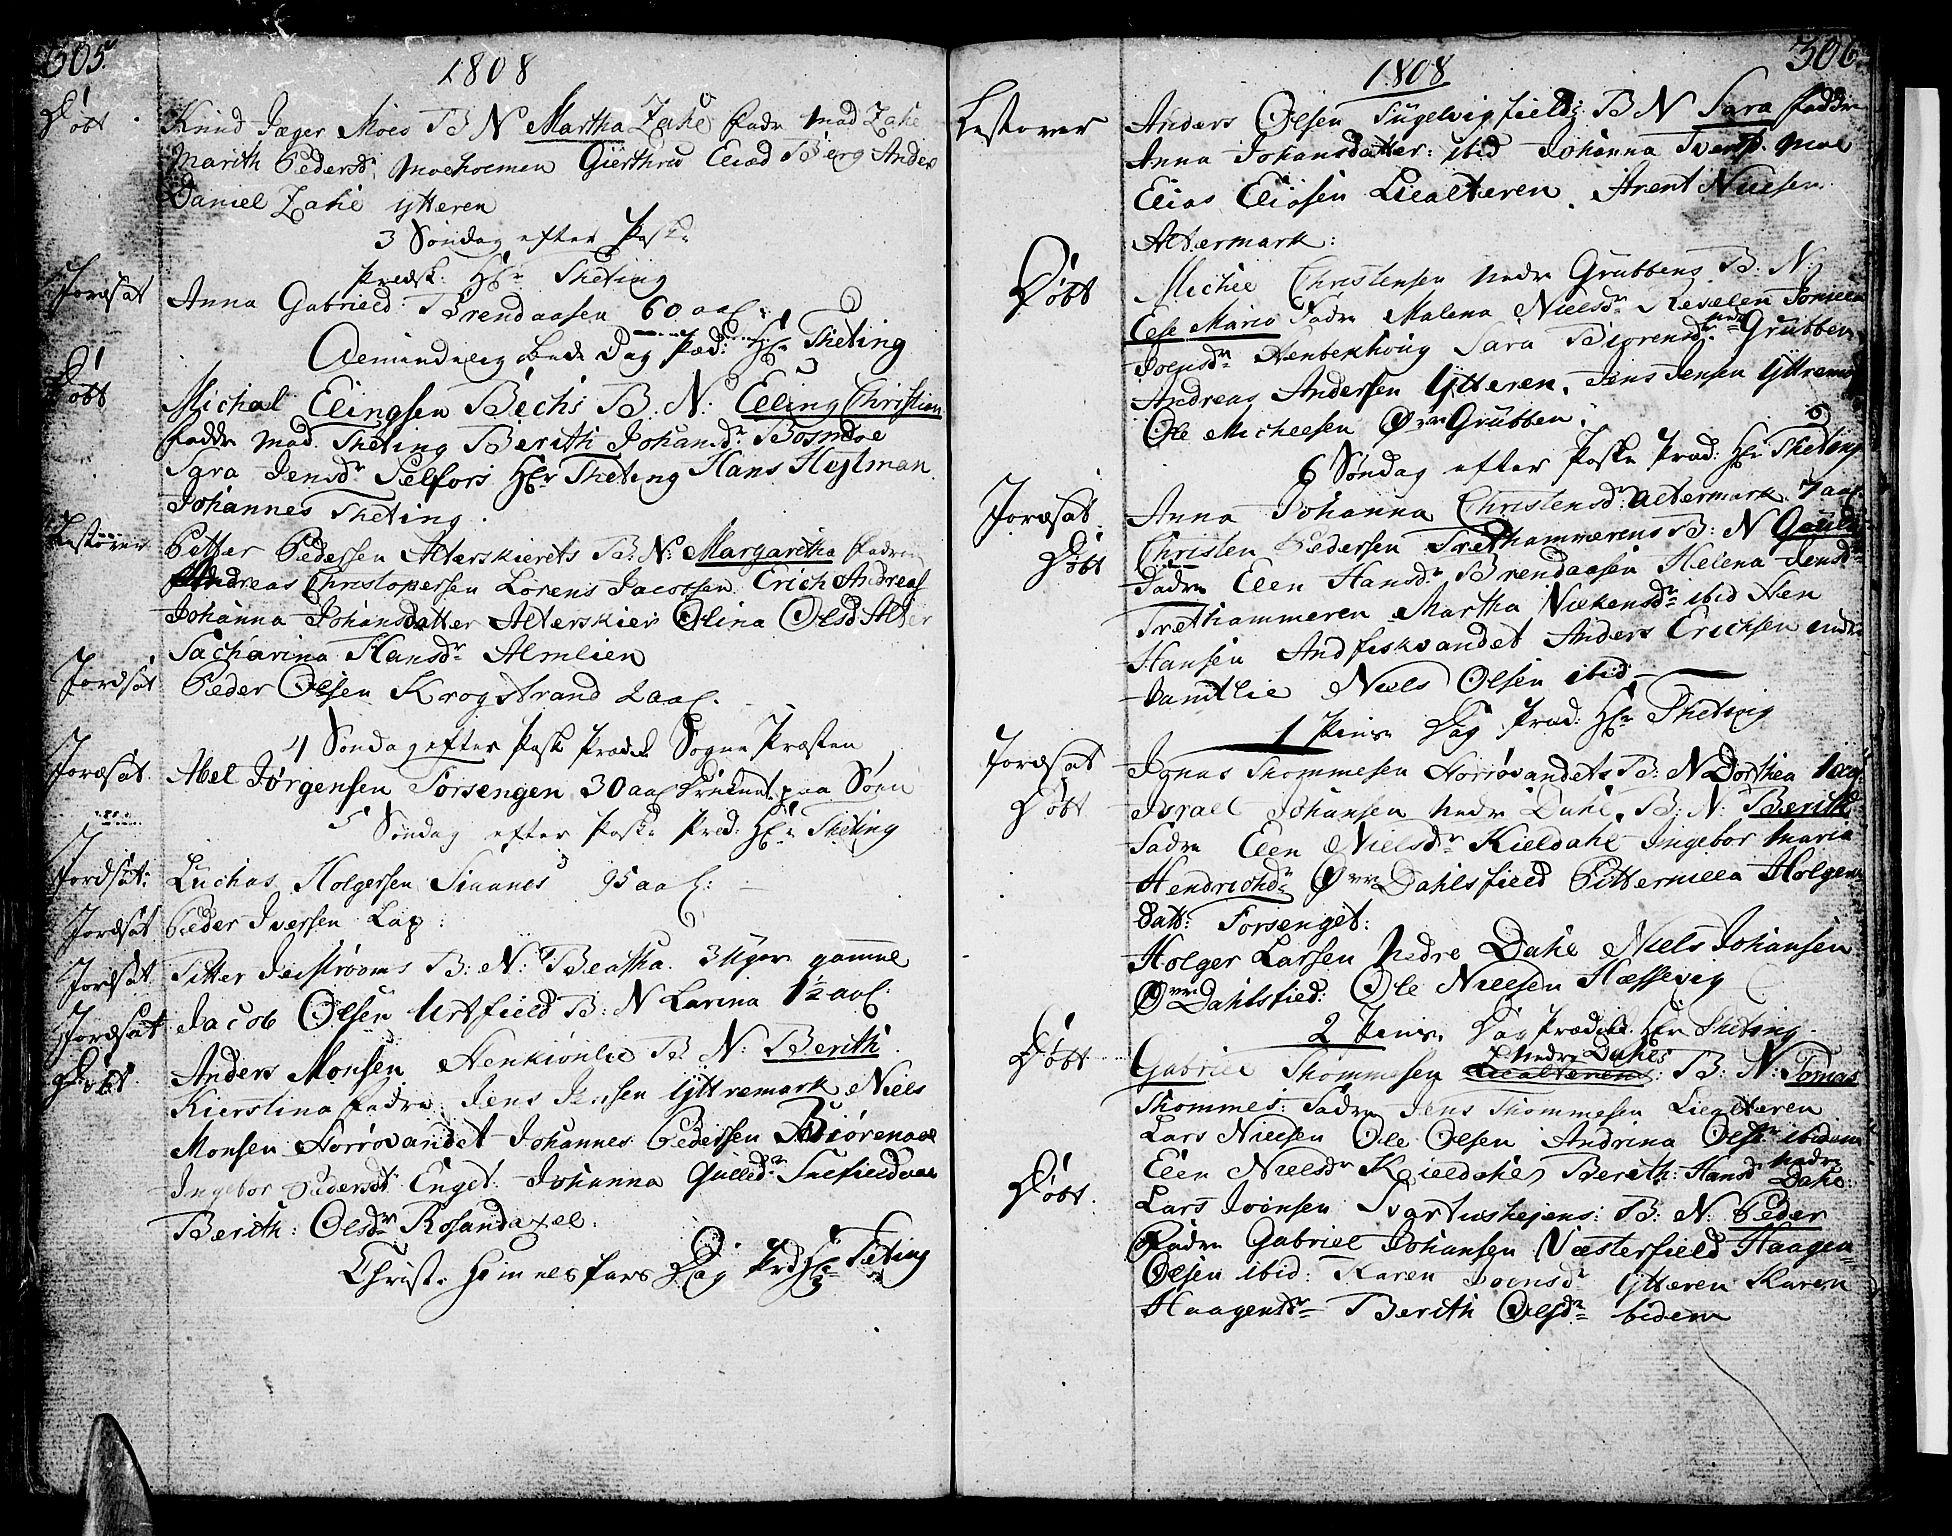 305.
1808
Døbt
Knud Jæger Moes B N Martha Zahl fadr Mad Zahl
Marith Pedersdr Moeholmen Gierthrud Elied Berg Anders
Daniel Zahl Ytteren
3 Søndag efter Paske
Prædk. Hr Theting
Jordsat
Anna Gabrield: Brendaasen 60 aal:
Almindelig bede Dag Præd: Hr Theting
Døbt
Michal Elingsen Bechs B. N: Elling Christian
faddr Mad. Theting Berith Johansdr Bosmoe
Sara Jensdr Selfors Hr Theting Hans Heltman
Johannes Theting.
Lestover
Petter Pedersen Alterskierets B: N: Margaretha fadre
Andreas Christopersen Lorens Jacobsen Erich Andreas
Johanna Johansdatter Alterskier Olina Olsd Alter
Sacharina Hansdr Almlien
Jordsat
Peder Olsen Krogstrand 2 aal.
4 Søndag efter Pask Prædk Sogne Præsten
Jordsat
Abel Jørgensen Forsengen 30 aal druknet paa Søen
5 Søndag efter Paske Præd: Hr Theting
Jordsat:
Luchas Holgersen Sinanes 95 aal:
Jordsat
Peder Iversen Lap:
Jordsat
Petter Jeistrøoms B: N: Beatha. 3 Uger gammel
Jordsat
Jacob Olsen Urtfield B: N Larina 1½ aal:
Døbt.
Anders Monsen Henkiønlie B N: Berith
Kierstina fadre: Jens Jensen Yttremark Niels
Monsen Horrøvandet Johannes Pedersen Biørenaae
Ingebor Pedersdt Enget. Johanna Gulledr
Berith: Olsdr Rosandaxel.
Christ. Himmelsfars Dag Prd Hr Teting
306
1808
Lestover
Anders Olsen Sugelvigfield: B N Sara fadder
Anna Johansdatter: ibid Johanna Mal
Elias Eliasen Lilalteren. Arent Nielsen
Altermark:
Døbt
Michel Christensen Nedre Grubbens B: N:
Else Maria Fadre Malena Nielsdr
Joensdr Henbekhoug Sara Biørensdr nedr Grubben
Andreas Andersen Ytteren. Jens Jensen Yttremark
Ole Michelsen Øvre Grubben.
6 Søndag efter Paske Præd: Hr Theting
Jordsat.
Anna Johanna Christensdr Altermark 7 aal
Døbt
Christen Pedersen Trethammerens B: N
Fadre Elen Hansdr Brendaasen Helena Jensdr
Trethammeren Martha Nielsensdr ibid Hen
Hansen Andfiskvandet Anders Erichsen
Niels Olsen ibid
1 Pins. Dag Præd: Hr Theting
Jordsat
Jonas Thommesen Horrøvandets B: N Dorthea 1 aal
Døbt
Israel Johansen Nedr Dahl. B: N: Berith
Fadre Elen Nielsdr Kieldahl Ingebor Maria
Hendrichdr Øvre Dahlsfield Pitternilla Holger
Datt: Forsenget:
Holger Larsen Nedre Dahl Niels Johansen
Øvr Dahlsfied: Ole Nielsen Hæssevig
2 Pins. Dag Prædk Hr Theting.
Døbt
Nedre Dahls
Gabriel Thommesen Lilalterens: B: N: Tomas
Thommes: Fadre Jens Thommesen Lilalteren
Lars Nielsen Ole Olsen Andrina Olsdr ibidem
Elen Nielsdr Kieldahl Berith: Hansd Nedre Dahl:
Døbt.
Lars Joensen Svartishejens: B: N: Peder
Fadre Gabriel Johansen Næsterfield Haagen
Olsen ibid: Karen Joensdr Ytteren Karen
Haagensdr Berith Olsdr ibidem